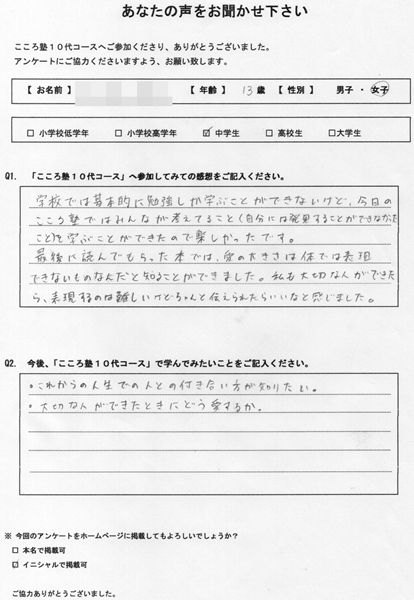 あなたの声をお聞かせ下さい
こころ塾10代コースへご参加くださり、ありがとうございました。
アンケートにご協力くださいますよう、お願い致します。
【お名前】 【年齢】 13歳 【性別】 男子・女子
□ 小学校低学年 □ 小学校高学年 ☑ 中学生 □ 高校生 □ 大学生
Q1. 「こころ塾10代コース」へ参加してみての感想をご記入ください。
学校では基本的に勉強しか学ぶことができないけど、今日の
こころ塾ではみんなが考えてること(自分には発見することができなかった
こと)を学ぶことができたので楽しかったです。
最後に読んでもらった本では、愛の大きさは体では表現
できないものなんだと知ることができました。私も大切な人ができた
ら、表現するのは難しいけどちゃんと伝えられたらいいなと感じました。
Q2. 今後、「こころ塾10代コース」で学んでみたいことをご記入ください。
・これからの人生での人との付き合い方が知りたい。
・大切な人ができたときにどう愛するか。
※ 今回のアンケートをホームページに掲載してもよろしいでしょうか?
□ 本名で掲載可
☑ イニシャルで掲載可
ご協力ありがとうございました。